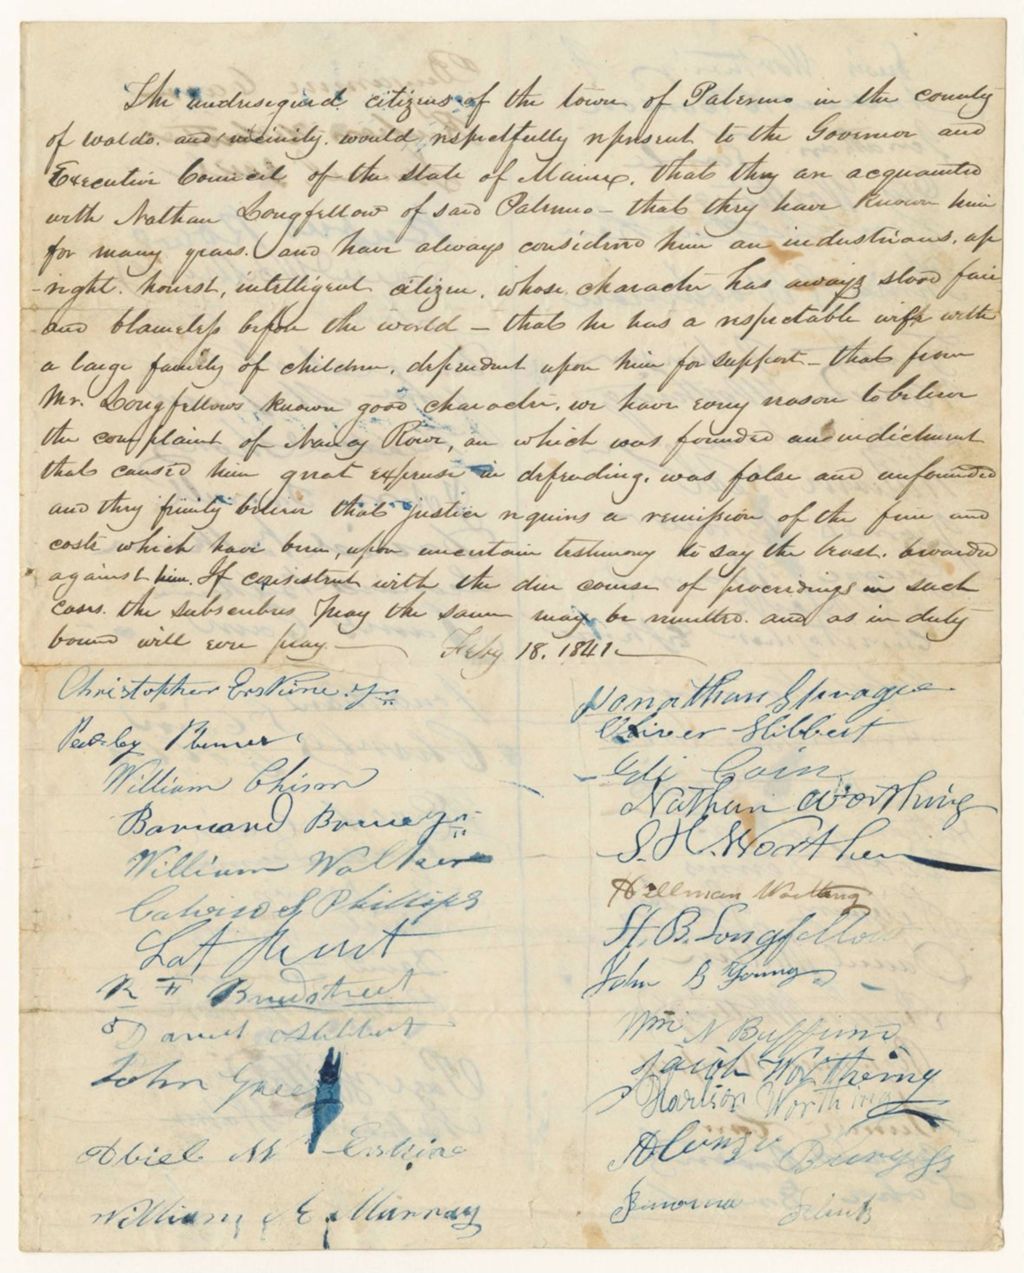 The undersigned citizens of the town of Palermo in the county
of Waldo. and vicinity. would respectfully represent to the Governor and
Executive Council of the state of Maine, that they are acquainted
with Nathan Longfellow of said Palermo - that they have known him
for many years. and have always considered him an industrious, up
-right. honest, intelligent citizen. whose character has always stood fair
and blameless before the world - that he has a respectable wife with
a large family of children, dependent upon him for support - that from
Mr. Longfellows known good character, we have every reason to believe
the complaint of Nancy Rowe, on which was founded an indictment
that caused him great expense in defending, was false and unfounded
and they firmly believe that justice requires a remission of the fine and
costs which have been, upon uncertain testimony to say the least. awarded
against him. If consistent with the due course of proceedings in such
cases. the subscribers pray the same may be remitted. and as in duty
bound will ever pray - Feby 18. 1841
Christopher Erskine Jr
Plumer
William Chism
Barnard Jr
William Walker
Phillips
R F Bradstreet
Daniel Hibbert
John
Abiel Erskine
William E. Murray
Jonathan Sprague
Oliver Hibbert
Eli Cain
Nathan Worthing
S. H. Worthen
Hillman Worthing
H. B. Longfellow
John B Young
Wm N Buffum
Jacob Worthing
Harison Worthing
Alonzo Burgess